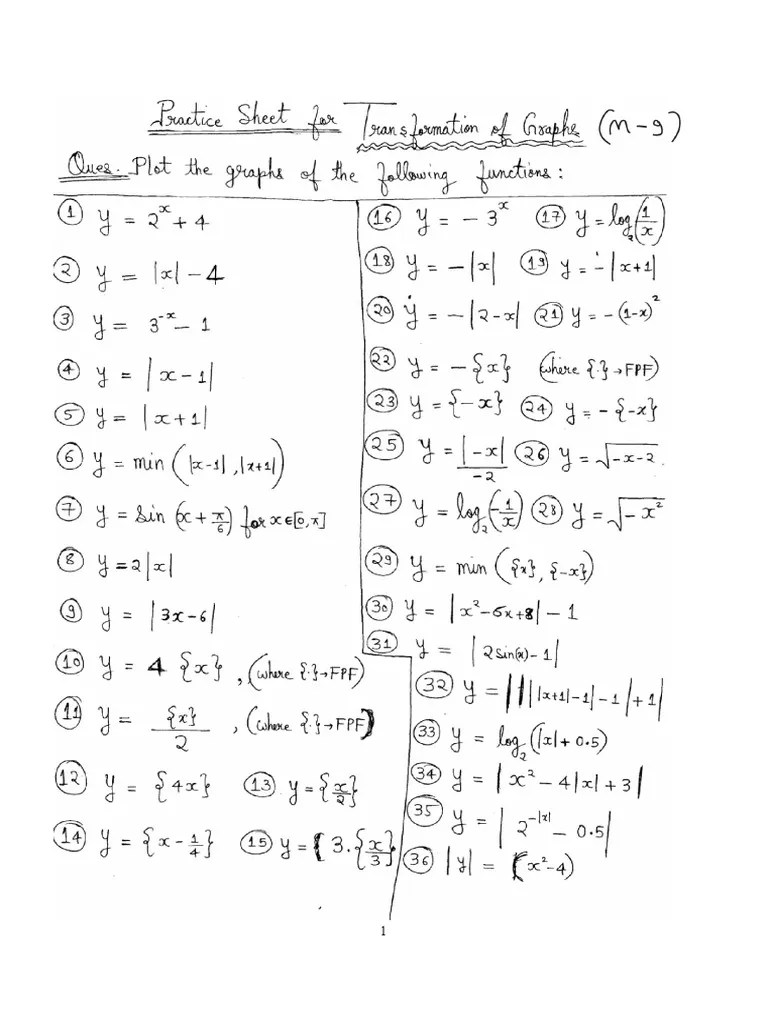 Practice Sheet for Transformation of Graphs (M-9)
Ques. Plot the graphs of the following functions:
① y = 2^x + 4
② y = |x| - 4
③ y = 3^-x - 1
④ y = |x - 1|
⑤ y = |x + 1|
⑥ y = min (|x-1|, |x+1|)
⑦ y = sin (x + π/6) for x∈[0,π]
⑧ y = 2|x|
⑨ y = |3x-6|
⑩ y = 4 {x}, (where {·}→FPF)
⑪ y = {x}/2, (where {·}→FPF)
⑫ y = {4x} ⑬ y = {x/2}
⑭ y = {x - 1/4} ⑮ y = (3.{x/3}
⑯ y = - 3^x ⑰ y = log₂(1/x)
⑱ y = -|x| ⑲ y = -|x+1|
⑳ y = -|2-x| ㉑ y = -(1-x)²
㉒ y = -{x} (where {·}→FPF)
㉓ y = {-x} ㉔ y = -{-x}
㉕ y = |-x|/-2 ㉖ y = √-x-2
㉗ y = log₂(-1/x) ㉘ y = √-x²
㉙ y = min ({x}, {-x})
㉚ y = |x²-6x+8| - 1
㉛ y = |2sin(x) - 1|
㉜ y = ||||x+1|-1|-1|+1|
㉝ y = log₂(|x| + 0.5)
㉞ y = |x² - 4|x| + 3|
㉟ y = |2^-|x| - 0.5|
㊱ |y| = (x²-4)
1